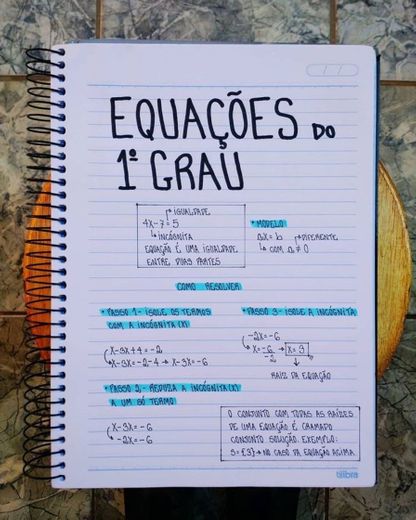 EQUAÇÕES DO
1º GRAU
IGUALDADE
4X - 7 = 5
INCÓGNITA
EQUAÇÃO É UMA IGUALDADE
ENTRE DUAS PARTES
• MODELO
aX = b
DIFERENTE
COM a ≠ 0
COMO RESOLVER
• PASSO 1 - ISOLE OS TERMOS
COM A INCÓGNITA (X)
X - 3X + 4 = -2
X - 3X = -2 - 4 → X - 3X = -6
• PASSO 2 - REDUZA A INCÓGNITA (X)
A UM SÓ TERMO
X - 3X = -6
-2X = -6
• PASSO 3 - ISOLE A INCÓGNITA
-2X = -6
X = -6/-2 → X = 3
RAIZ DA EQUAÇÃO
O CONJUNTO COM TODAS AS RAÍZES
DE UMA EQUAÇÃO É CHAMADO
CONJUNTO SOLUÇÃO. EXEMPLO:
S = {3} → NO CASO DA EQUAÇÃO ACIMA
tilibra